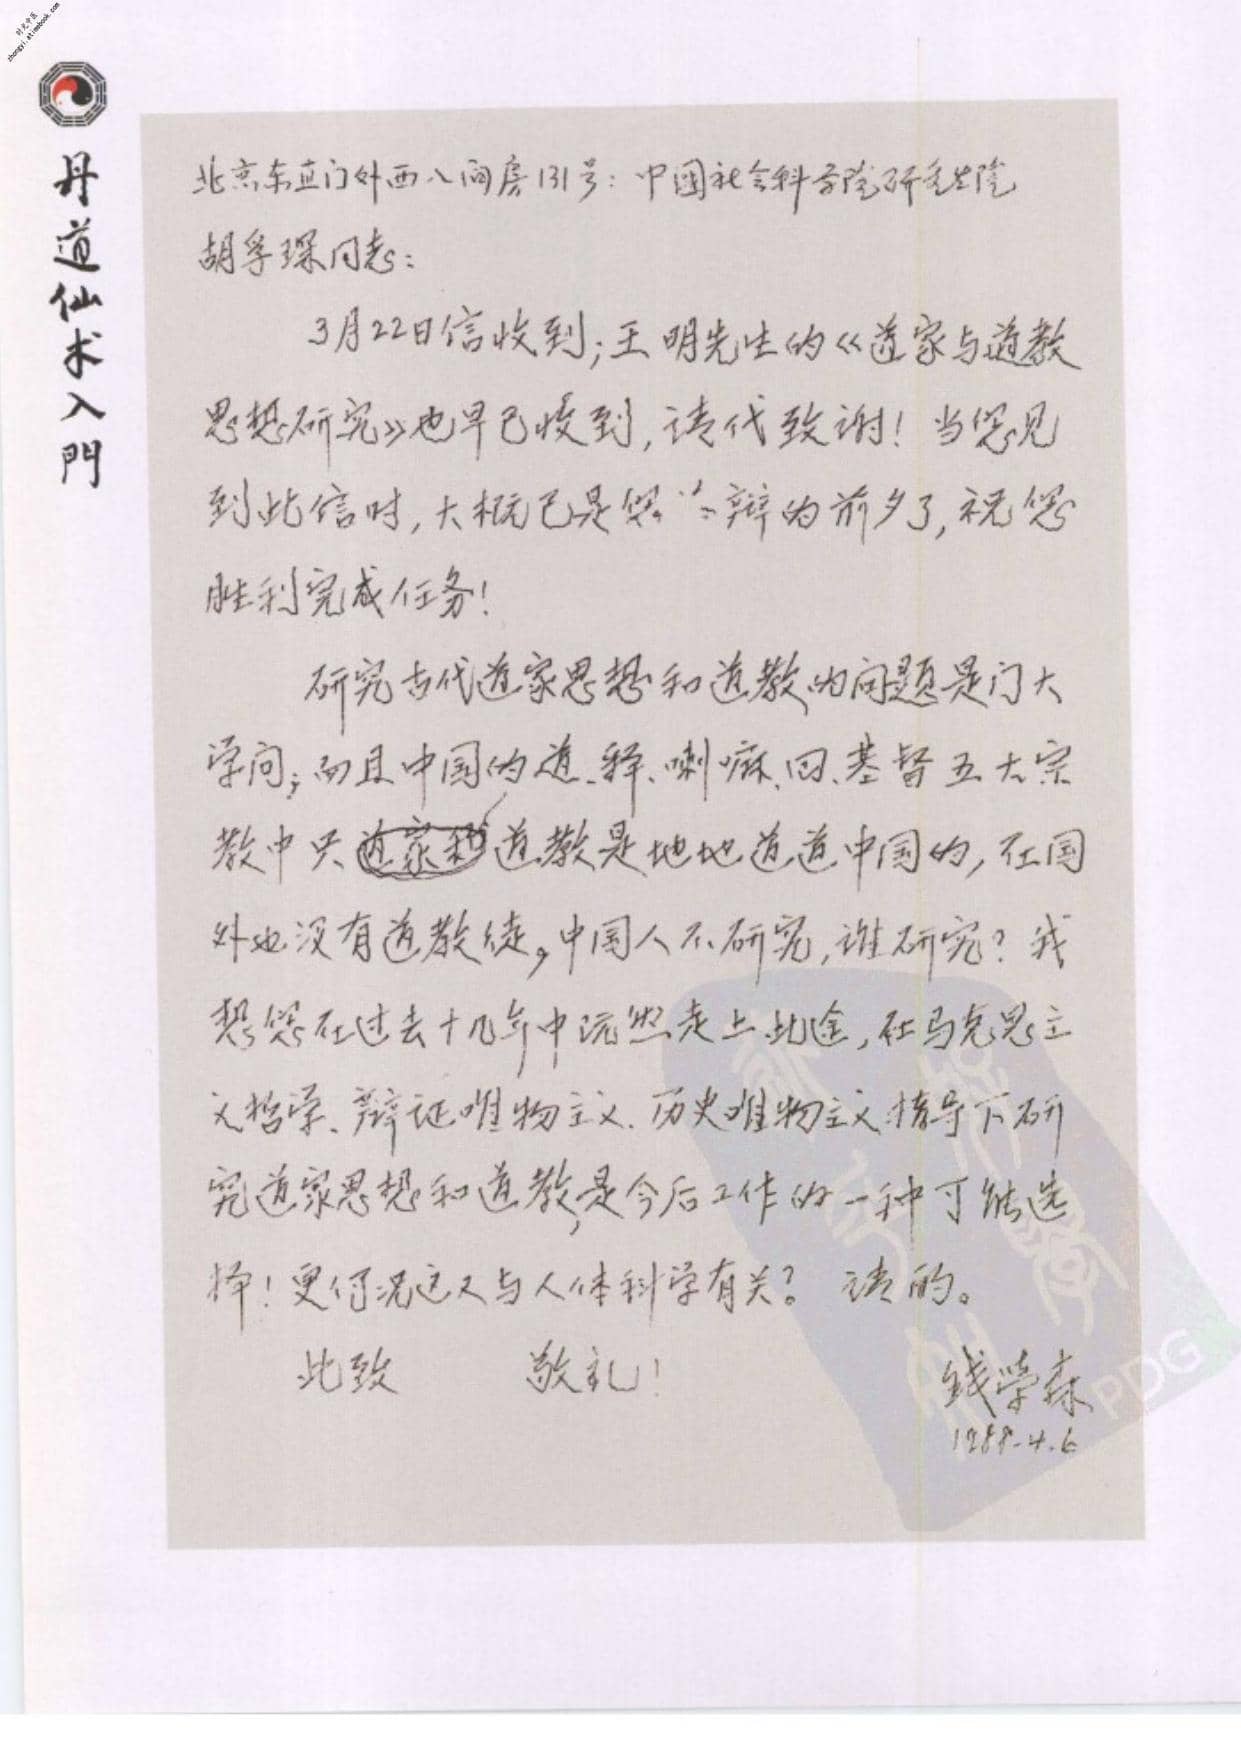 时光中医
zhongyi.atimebook.com
丹道仙术入門
北京东直门外西八间房131号：中國社会科学院研究生院
胡孚琛同志：
3月22日信收到；王明先生的《道家与道教
思想研究》也早已收到，请代致谢！当您见
到此信时，大概已是您 辩的前夕了，祝您
胜利完成任务！
研究古代道家思想和道教的问题是门大
学问；而且中国的道、释、喇嘛、回、基督五大宗
教中只道教是地地道道中国的，在国
外也没有道教徒。中国人不研究，谁研究？我
想您在过去十几年中既然走上此途，在马克思主
义哲学、辩证唯物主义、历史唯物主义指导下研
究道家思想和道教，是今后工作的一种可能选
择！更何况这又与人体科学有关？ 请酌。
此致 敬礼！
钱学森
1988.4.6
PDG